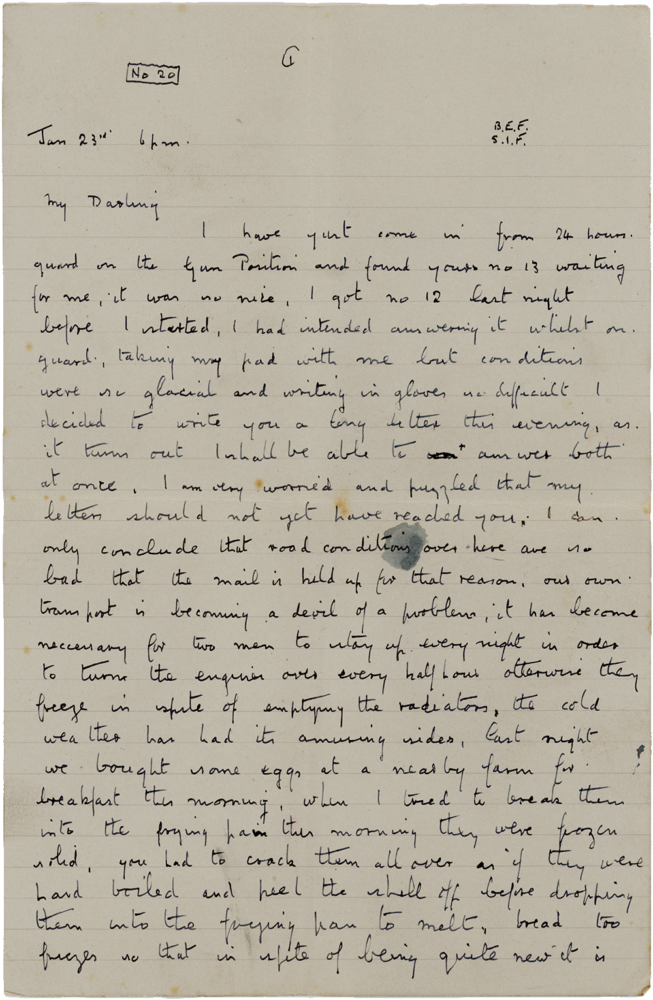 ①
No 20
Jan 23rd 6pm.
B.E.F.
S.I.F.
My Darling
I have just come in from 24 hours.
guard on the Gun Position and found yours no 13 waiting
for me, it was so nice, I got no 12 last night
before I started, I had intended answering it whilst on.
guard, taking my pad with me but conditions
were so glacial and writing in gloves so difficult I
decided to write you a long letter this evening, as.
it turns out I shall be able to answer both
at once, I am very worried and puzzled that my
letters should not yet have reached you, I can.
only conclude that road conditions over here are so
bad that the mail is held up for that reason, our own.
transport is becoming a devil of a problem, it has become
neccessary for two men to stay up every night in order
to turn the engines over every half hour otherwise they
freeze in spite of emptying the radiators, the cold
weather has had its amusing sides, last night
we bought some eggs at a nearby farm for
breakfast this morning, when I tried to break them
into the frying pan this morning they were frozen
solid, you had to crack them all over as if they were
hard boiled and peel the shell off before dropping
them into the frying pan to melt, bread too
freezes so that in spite of being quite new it is